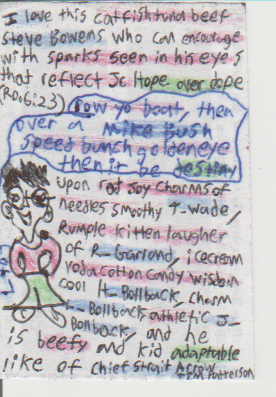 I love this catfish tuna beef
Steve Bowens who can encourage
with sparks seen in his eyes
that reflect Jc Hope over dope
(RO.6:23) row yo boat, then
over a Mike Bush
speed bunch goldeneye
then ir be destiny
upon rod joy charms of
needles smoothy T-wade,
Rumple kitten laugher
of R_Garland, icecream
yoda cotton candy wisdom
cool H_Bollback, charm
_Bollback athletic J_
Bollback, and he
is beefy and kid adaptable
like of chief strait Arrow
Tim Patterson